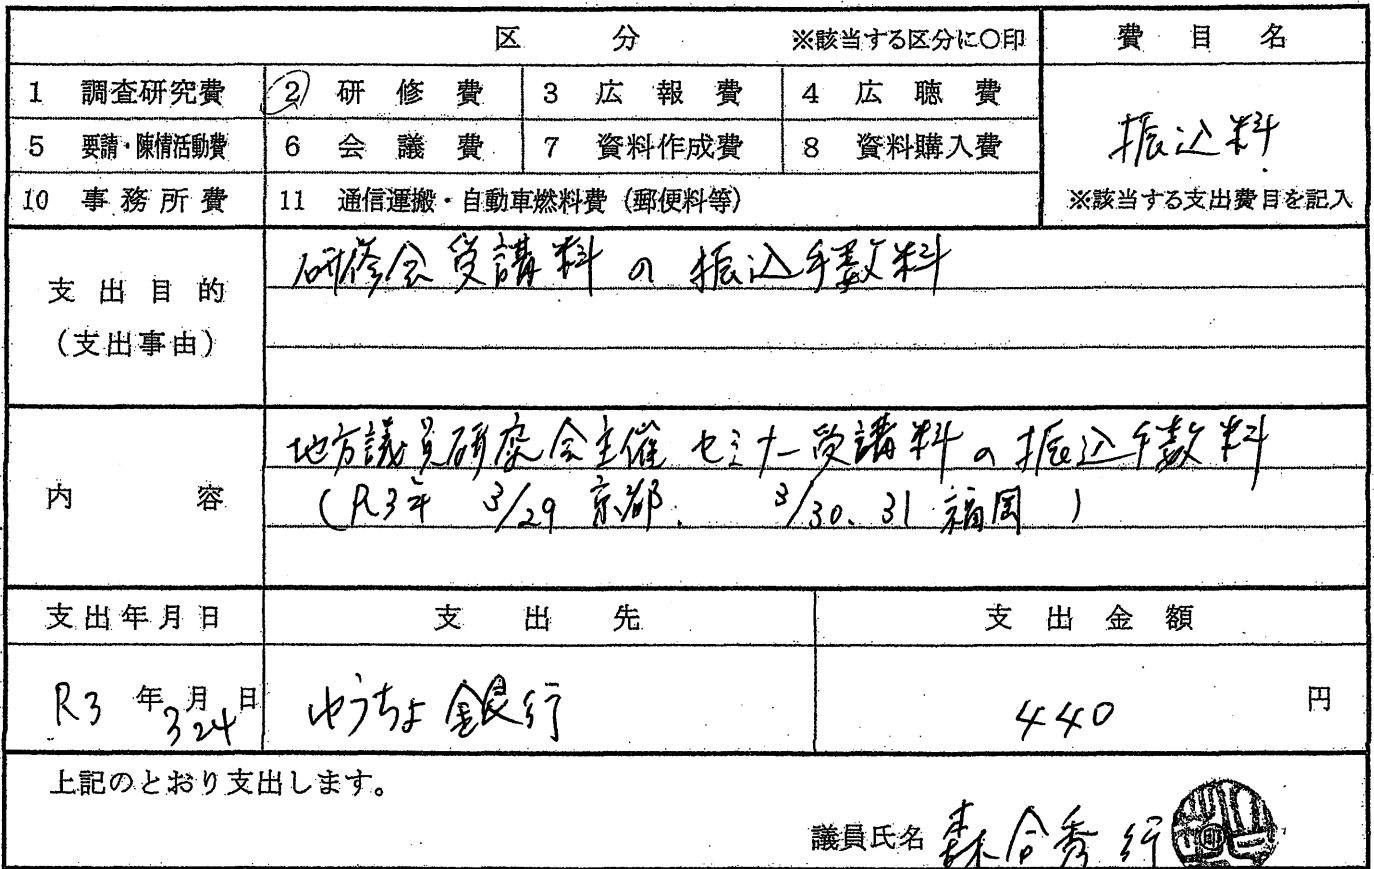 区 分 ※該当する区分に○印 費目名
1 調査研究費 ② 研修費 3 広報費 4 広聴費
振込料
5 要請・陳情活動費 6 会議費 7 資料作成費 8 資料購入費
10 事務所費 11 通信運搬・自動車燃料費(郵便料等) ※該当する支出費目を記入
研修会受講料の振込手数料
支出目的
(支出事由)
地方議員研究会主催 セミナー受講料の振込手数料
内容
(R3年 3/29 京都. 3/30、31 福岡)
支出年月日 支出先 支出金額
R3年3月24日 ゆうちょ銀行 440 円
上記のとおり支出します。
議員氏名 森合秀行